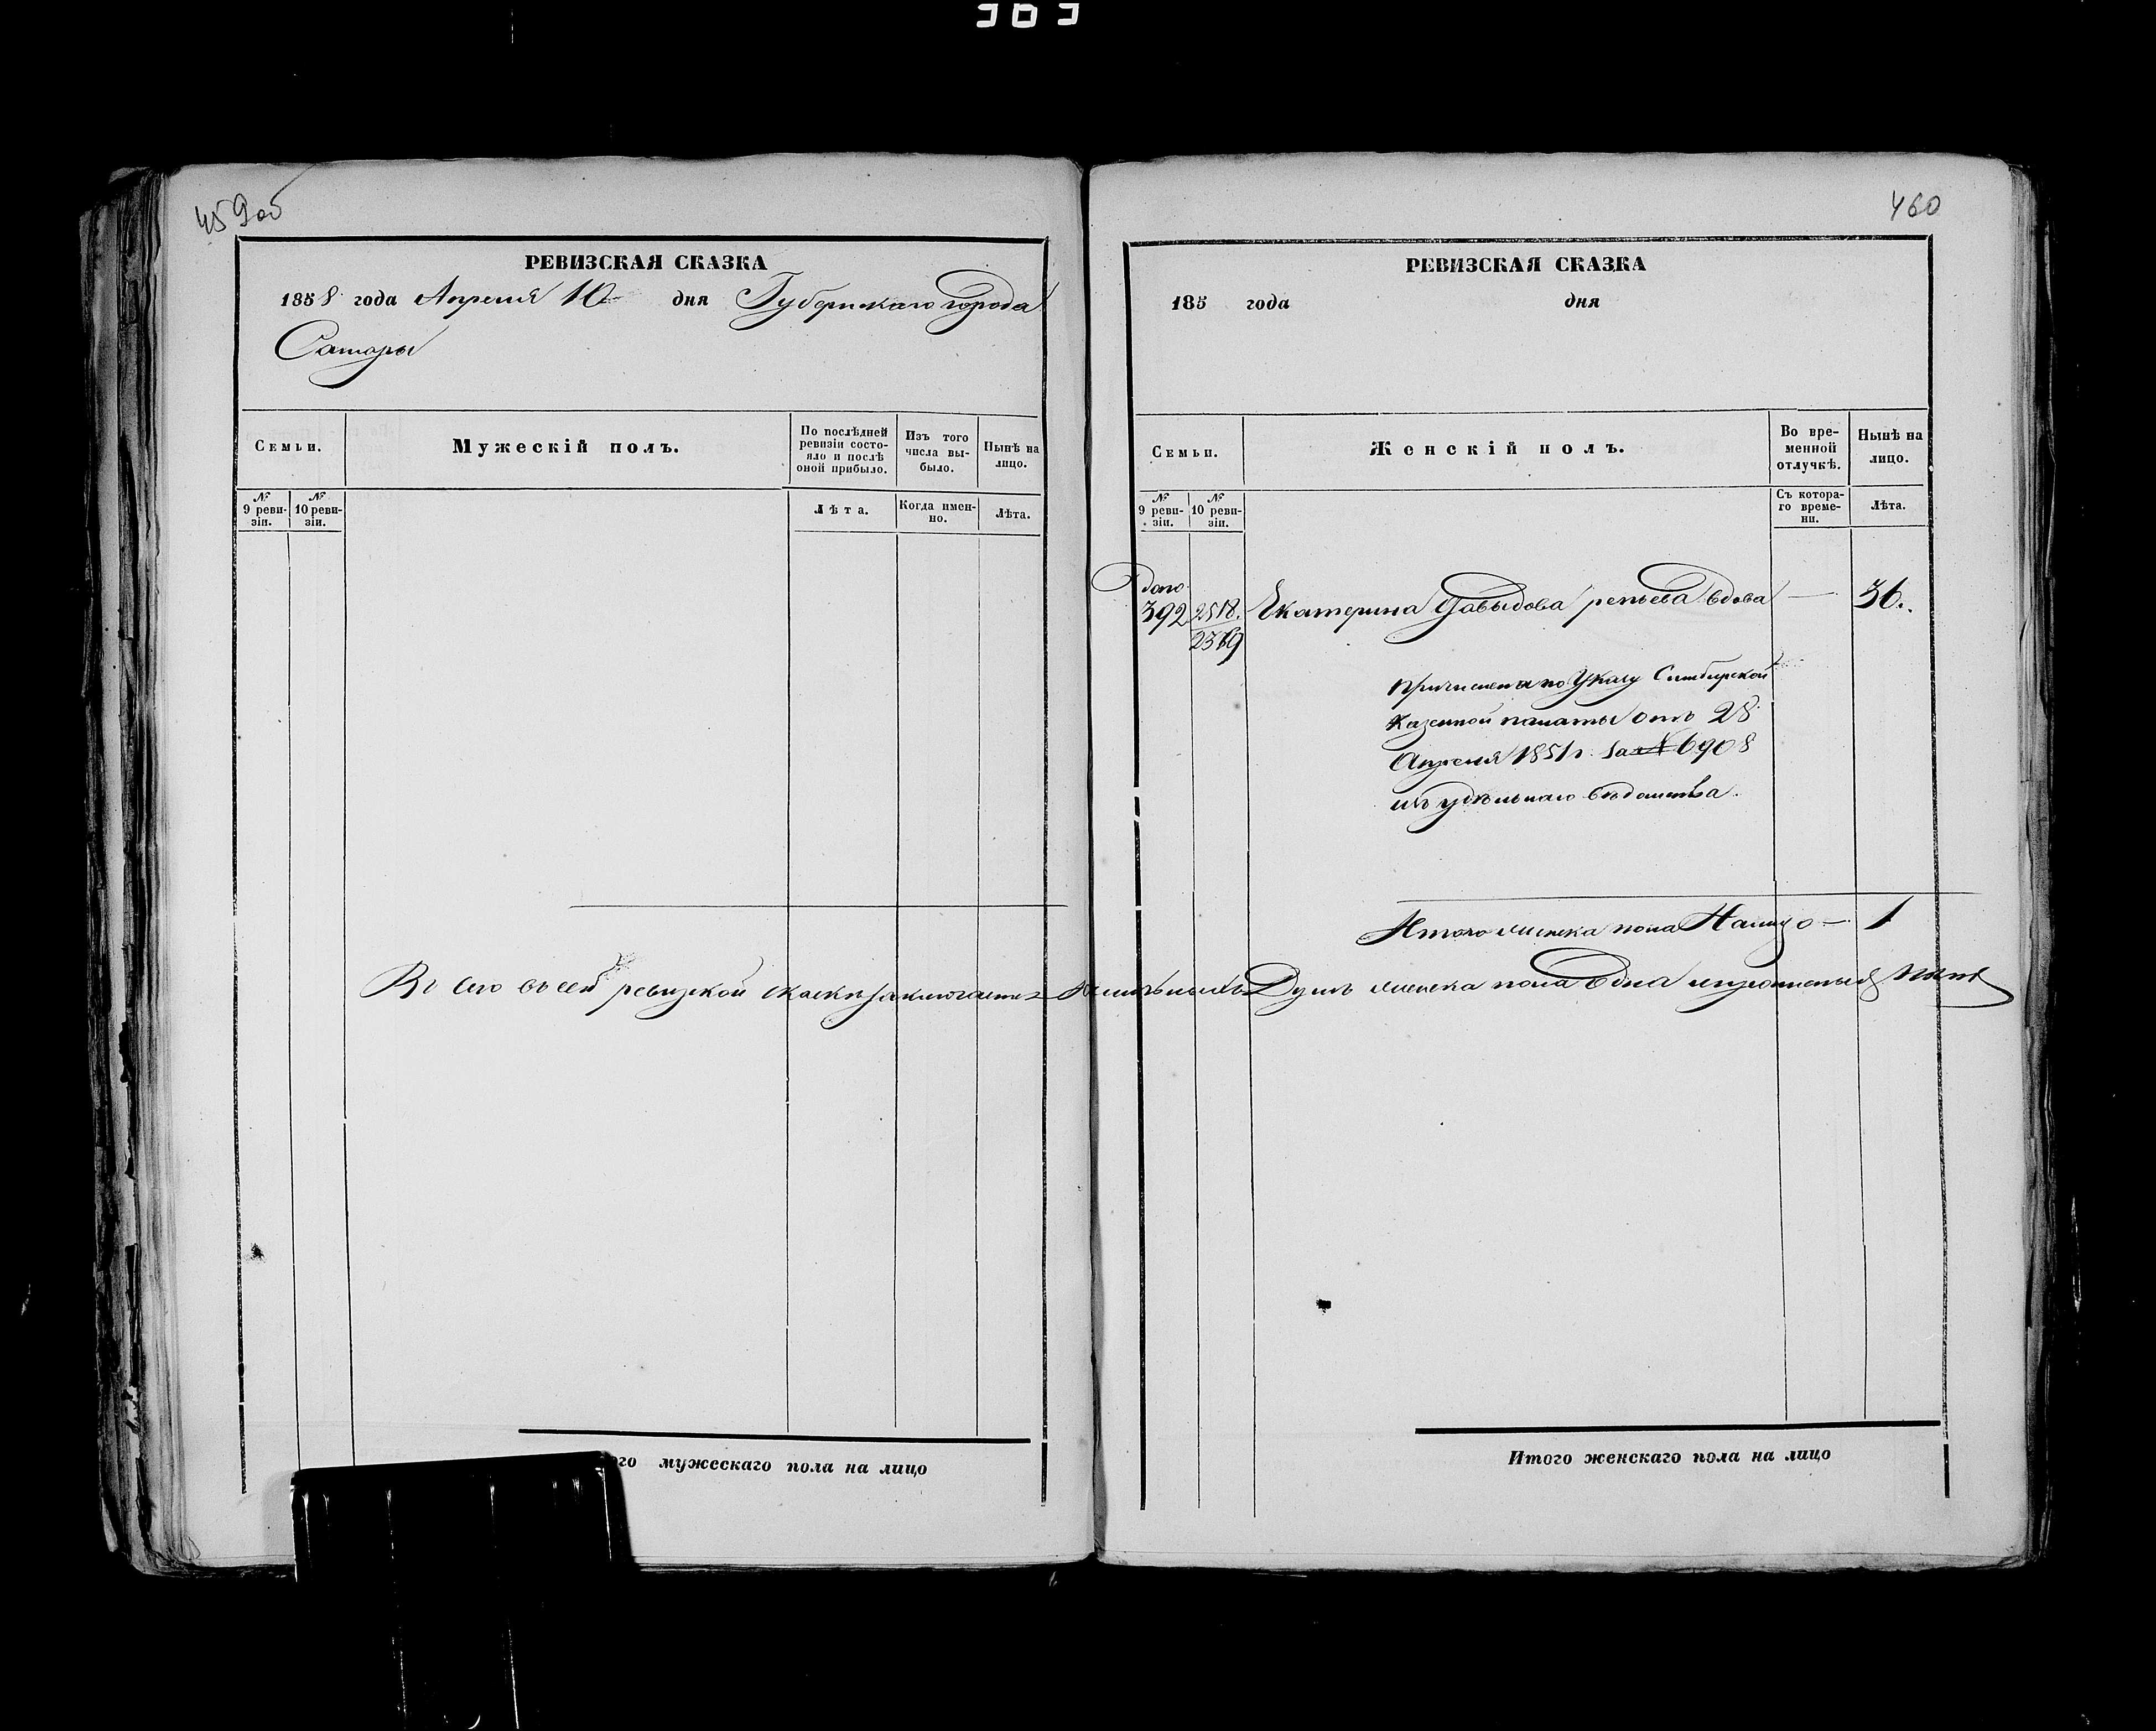 459об
РЕВИЗСКАЯ СКАЗКА
1858 года Апреля 10 дня Губернскаго города
Самары
Семьи.
Мужескій полъ.
По послѣдней ревизіи состояло и послѣ оной прибыло.
Изъ того числа выбыло.
Нынѣ на лицо.
№ 9 ревизіи.
№ 10 ревизіи.
Лѣта.
Когда именно.
Лѣта.
460
РЕВИЗСКАЯ СКАЗКА
185 года дня
Семьи.
Женскій полъ.
Во временной отлучкѣ.
Нынѣ на лицо.
№ 9 ревизіи.
№ 10 ревизіи.
Съ котораго времени.
Лѣта.
Допо
392 2518. Екатерина Давыдова репьева вдова — 36.
2369
причислена по Указу Симбирской
Казенной палаты отъ 28
Апреля 1851 г. за № 6908
изъ удѣльнаго вѣдомства.
Итого женска пола Налицо — 1
Всего въ сей ревизской скаскѣ заключается Душъ женска пола одна
го мужескаго пола на лицо
Итого женскаго пола на лицо